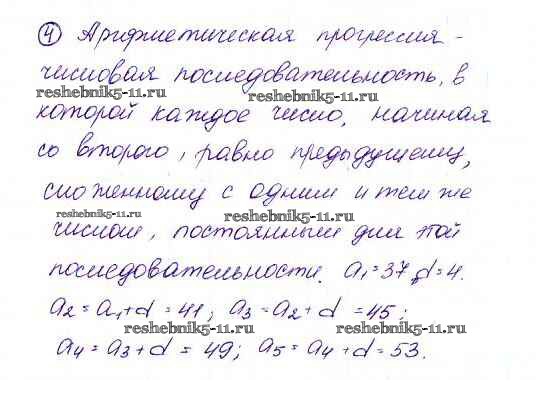 4 Арифметическая прогрессия -
числовая последовательность, в
reshebnik5-11.ru reshebnik5-11.ru
которой каждое число, начиная
со второго, равно предыдущему,
сложенному с одним и тем же
reshebnik5-11.ru reshebnik5-11.ru
числом, постоянным для этой
последовательности. a₁=37, d=4.
a₂=a₁+d=41; a₃=a₂+d=45;
reshebnik5-11.ru reshebnik5-11.ru
a₄=a₃+d=49; a₅=a₄+d=53.